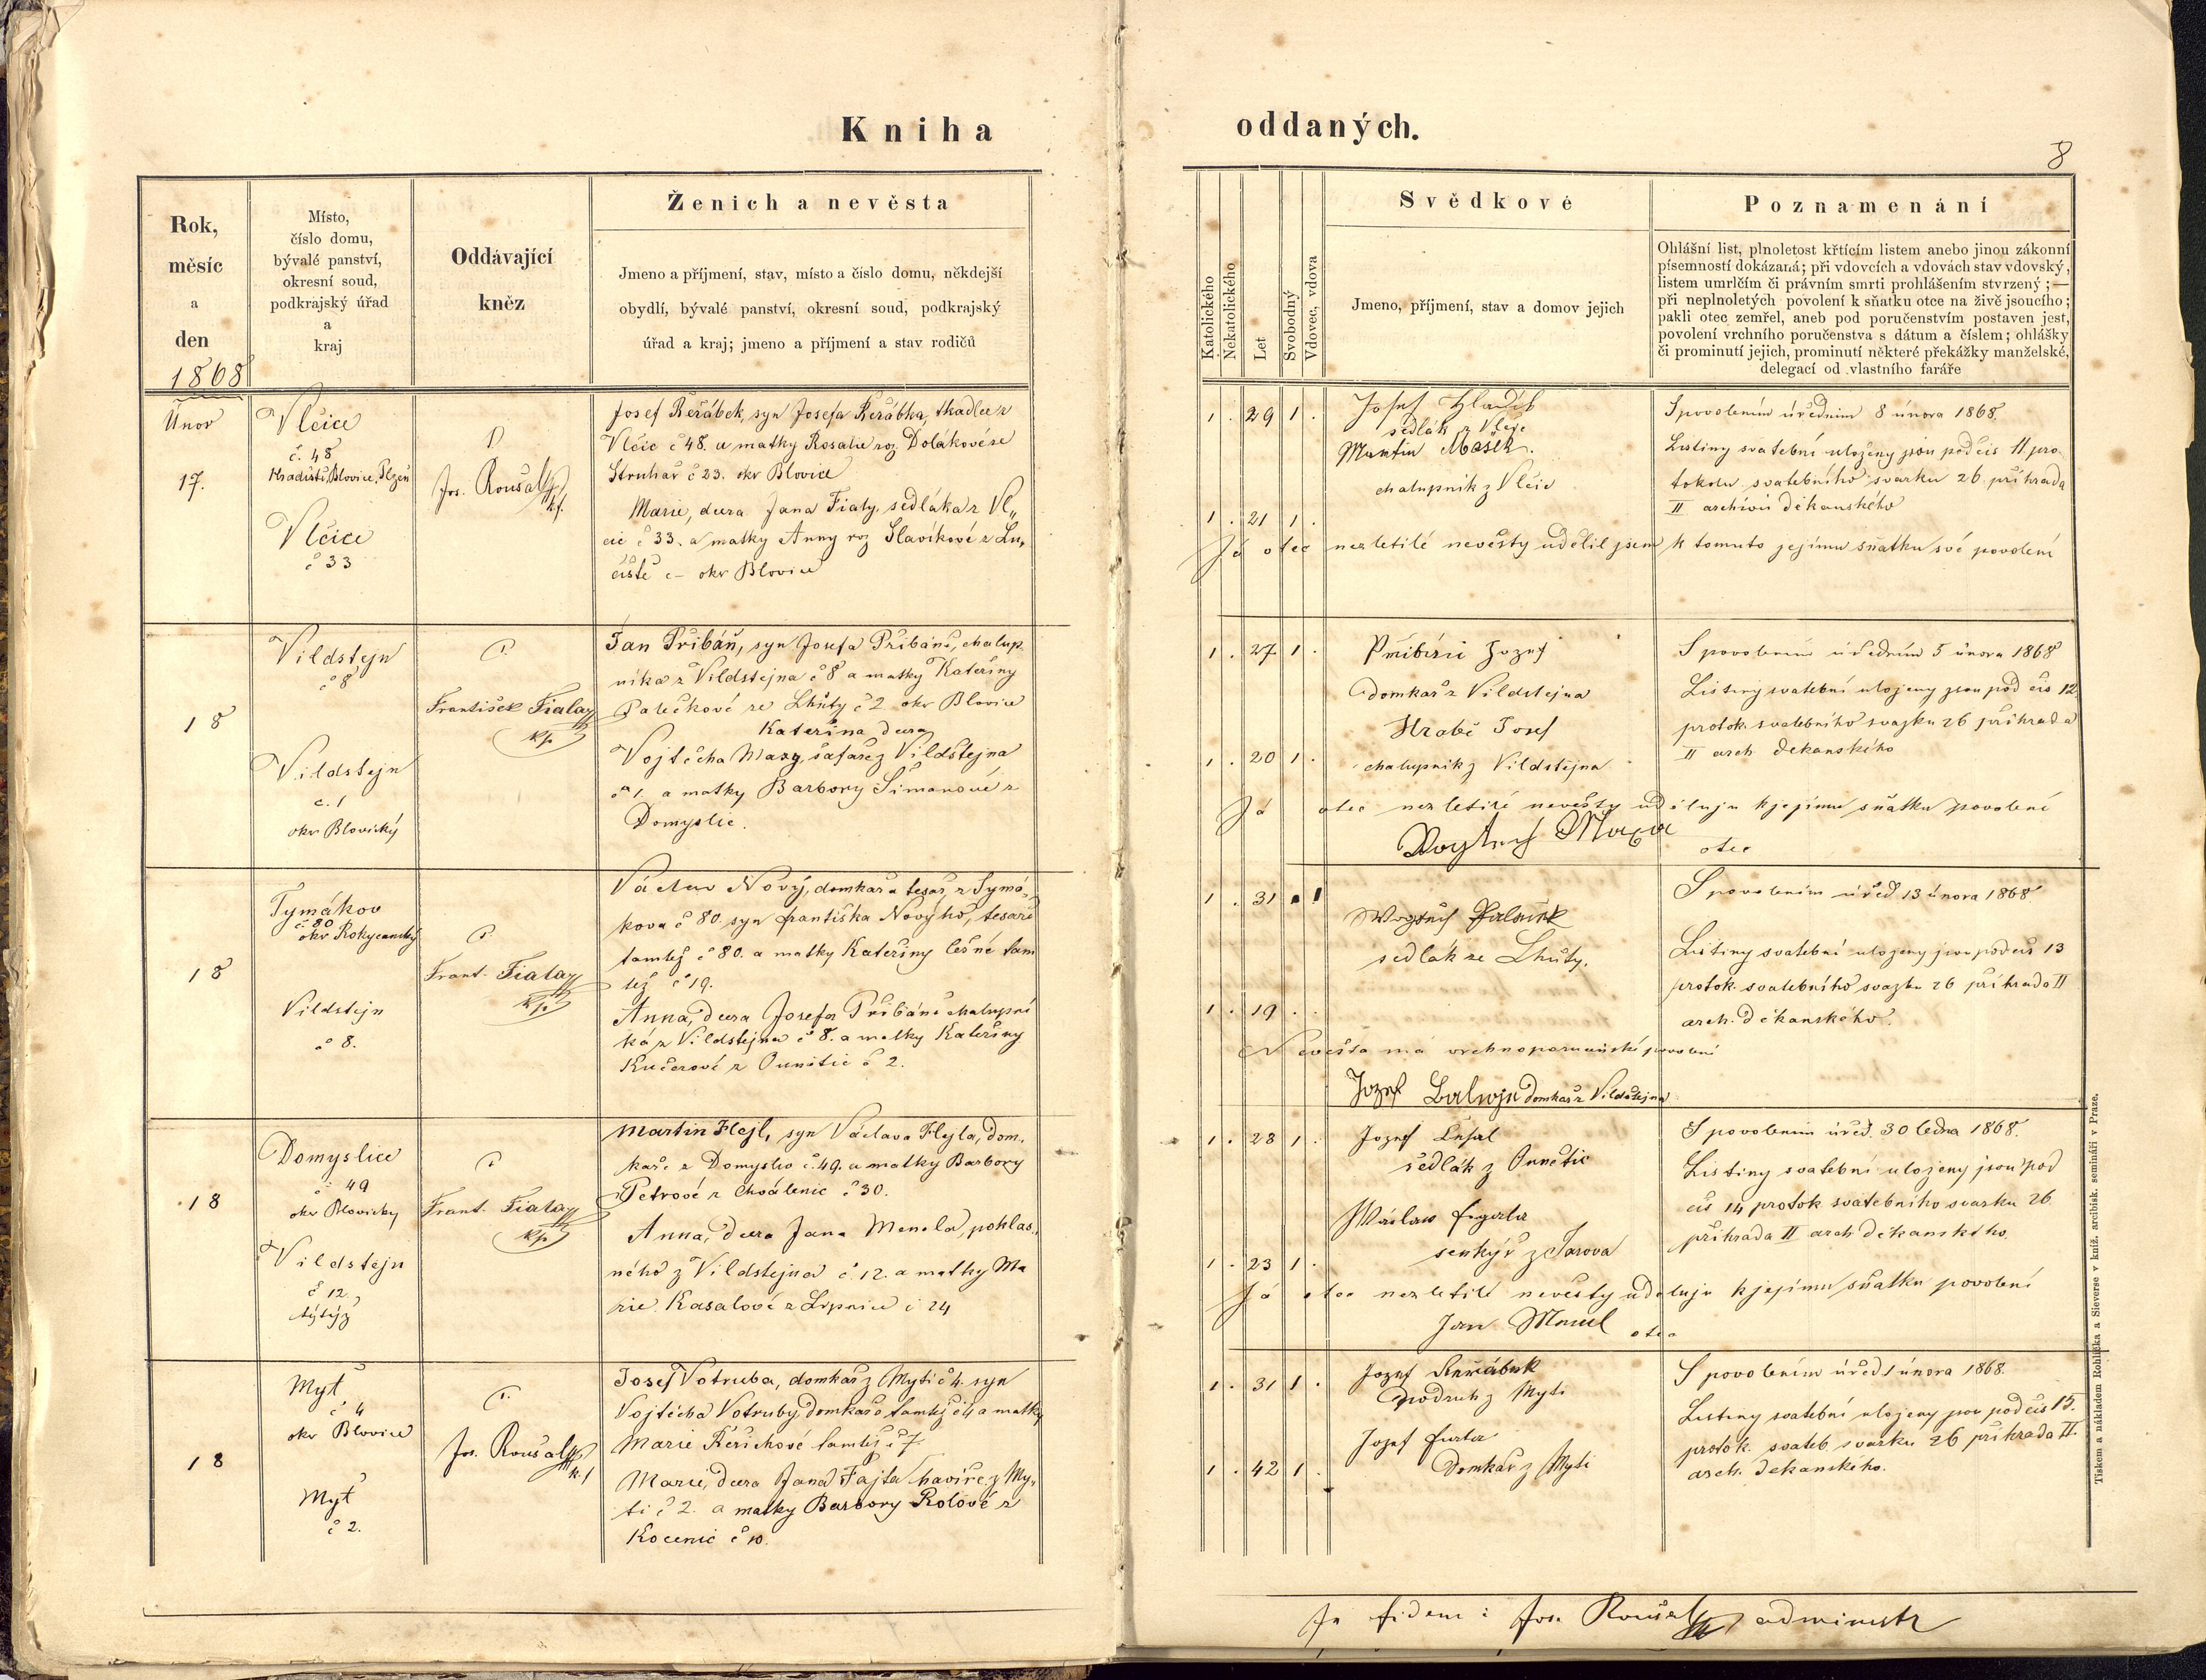 Kniha
oddaných.
8
Rok,
měsíc
a
den
1868
Místo,
číslo domu,
bývalé panství,
okresní soud,
podkrajský úřad
a
kraj
Oddávající
kněz
Ženich a nevěsta
Jmeno a příjmení, stav, místo a čislo domu, někdejší
obydlí, bývalé panství, okresní soud, podkrajský
úřad a kraj; jmeno a příjmení a stav rodičů
Katolického
Nekatolického
Let
Svobodný
Vdovec, vdova
Svědkové
Jmeno, příjmení, stav a domov jejich
Poznamenání
Ohlášní list, plnoletost křtícím listem anebo jinou zákonní
písemností dokázaná; při vdovcích a vdovách stav vdovský,
listem umrlčím či právním smrti prohlášením stvrzený; —
při neplnoletých povolení k sňatku otce na živě jsoucího;
pakli otec zemřel, aneb pod poručenstvím postaven jest,
povolení vrchního poručenstva s dátum a číslem; ohlášky
či prominutí jejich, prominutí některé překážky manželské,
delegací od vlastního faráře
Únor
17.
Vlčice
č. 48
Hradiště, Blovice, Plzeň
Vlčice
č 33
Jos. Roušal
Josef Řeřábek, syn Josefa Řeřábka, tkadlce z
Vlčic č 48. a matky Rosalie roz Dolákové ze
Struhař č 23. okr Blovice
Marie, dcera Jana Fialy, sedláka z Vl„
čic č 33. a matky Anny roz Slavíkové z Lu„
čiště č – okr Blovice
1 . 29 1 .
Josef Hladík
sedlák z Vlčic
Martin Mašek.
chalupník z Vlčic
1 . 21 1 .
S povolením úředním 8 února 1868.
Listiny svatební uloženy jsou pod čís 11 pro
tokolu svatebního svazku 26 přihrada
II archivu děkanského
Já otec nezletilé nevěsty udělil jsem k tomuto jejímu sňatku své povolení
18
Vildstejn
č 8
Vildstejn
č. 1
okr Blovický
František Fiala
kp.
Jan Přibáň, syn Josefa Přibáně, chalup
níka z Vildstejna č 8 a matky Kateřiny
Palečkové ze Lhůty č 2 okr Blovice
Kateřina dcera
Vojtěcha Maxy, šafáře z Vildstejna
č 1. a matky Barbory Šimanové z
Domyslic.
1 . 27 1 .
Přibáň Jozef
domkař z Vildstejna
Hrabě Josef
chalupník z Vildstejna
1 . 20 1 .
S povolením úředním 5 února 1868
Listiny svatební uloženy jsou pod čís 12
protok. svatebního svazku 26 přihrada
II arch děkanského
Já otec nezletilé nevěsty uděluju k jejímu sňatku povolení
Maxa
otec
18
Tymákov
č 80
okr Rokycanský
Vildstejn
č 8.
Frant. Fiala
kp.
Václav Nový, domkář a tesař, z Tymá„
kova č 80. syn Františka Nového, tesaře
tamtéž č 80. a matky Kateřiny Lešné tam
též č 19.
Anna, dcera Josefa Přibáně chalupní
ka z Vildstejna č 8. a matky Kateřiny
Kučerové z Ounětic č 2.
1 . 31 . 1
sedlák ze Lhůty.
1 . 19 . .
S povolením úřed 13 února 1868.
Listiny svatební uloženy jsou pod čís 13
protok. svatebního svazku 26 přihrada II
arch. děkanského.
Nevěsta má vrchnoporučenské povolení
Jozef domkař z Vildstejna
18
Domyslice
č 49
okr Blovický
Vildstejn
č 12.
týtýž
Frant. Fiala
kp.
Martin Flejl, syn Václava Flejla, dom„
kaře z Domyslic č. 49. a matky Barbory
Petrové z Chválenic č 30.
Anna, dcera Jana Mencla, pohlas„
ného z Vildstejna č. 12. a matky Ma
rie Kasalové z Lipnice č 24
1 . 28 1 .
Jozef
sedlák z Ounětic
Václav
senkýř z Žarova
1 . 23 1 .
S povolením úřed. 30 ledna 1868.
Listiny svatební uloženy jsou pod
čís 14 protok svatebního svazku 26
přihrada II arch děkanského.
Já otec nezletilé nevěsty uděluju k jejímu sňatku povolení
Jan Mencl otec
18
Myť
č 4
okr Blovice
Myť
č 2.
Jos. Roušal
Josef Votruba, domkář z Mýti č 4. syn
Vojtěcha Votruby, domkaře tamtéž č 4 a matky
Marie Řeřichové tamtéž č 7.
Marie, dcera Jana Fajta havíře z My„
ti č 2. a matky Barbory Rolové z
Kocenic č 10.
1 . 31 1 .
Jozef Řeřábek
podruh z Myti
Jozef
Domkář z Myti
1 . 42 1 .
S povolením úřed 1 února 1868.
Listiny svatební uloženy jsou pod čís 15.
protok. svateb svazku 26 přihrada II.
arch. děkanského.
Tiskem a nákladem Rohlíčka a Sieverse v kníž. arcibisk. semináři v Praze.
In fidem: Jos. Roušal administr